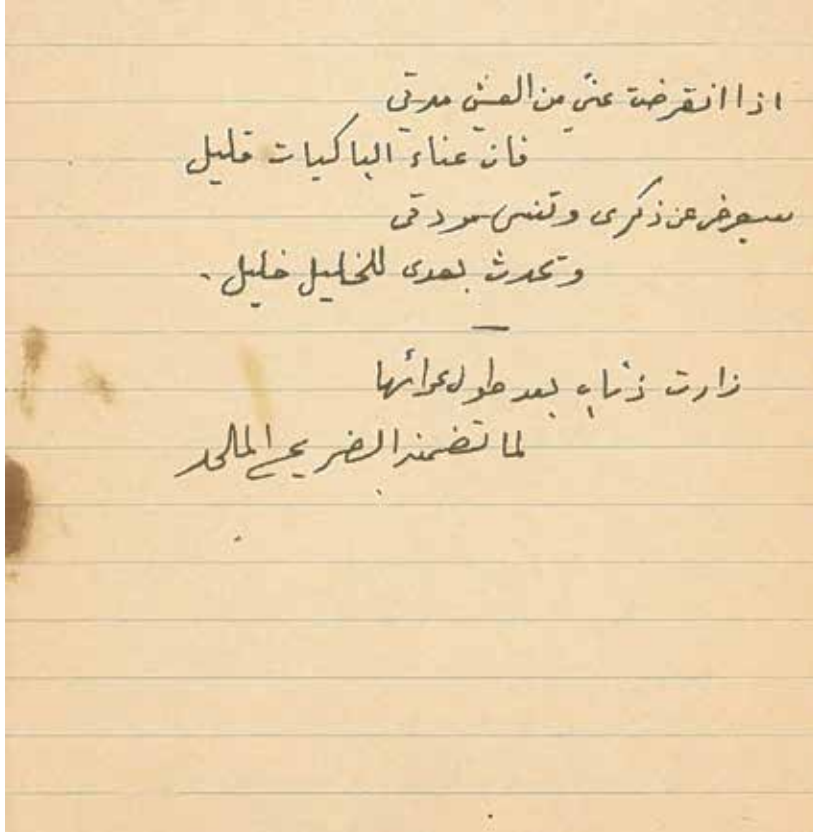 اذا انقرضت عني من العيش مدتي
فان عناء الباكيات قليل
سيعرض عن ذكرى وتنسى مودتي
وتحدث بعدى للخليل خليل .
زارت ذئاب بعد طول عوائها
لما تضمنه الضريح الملحد